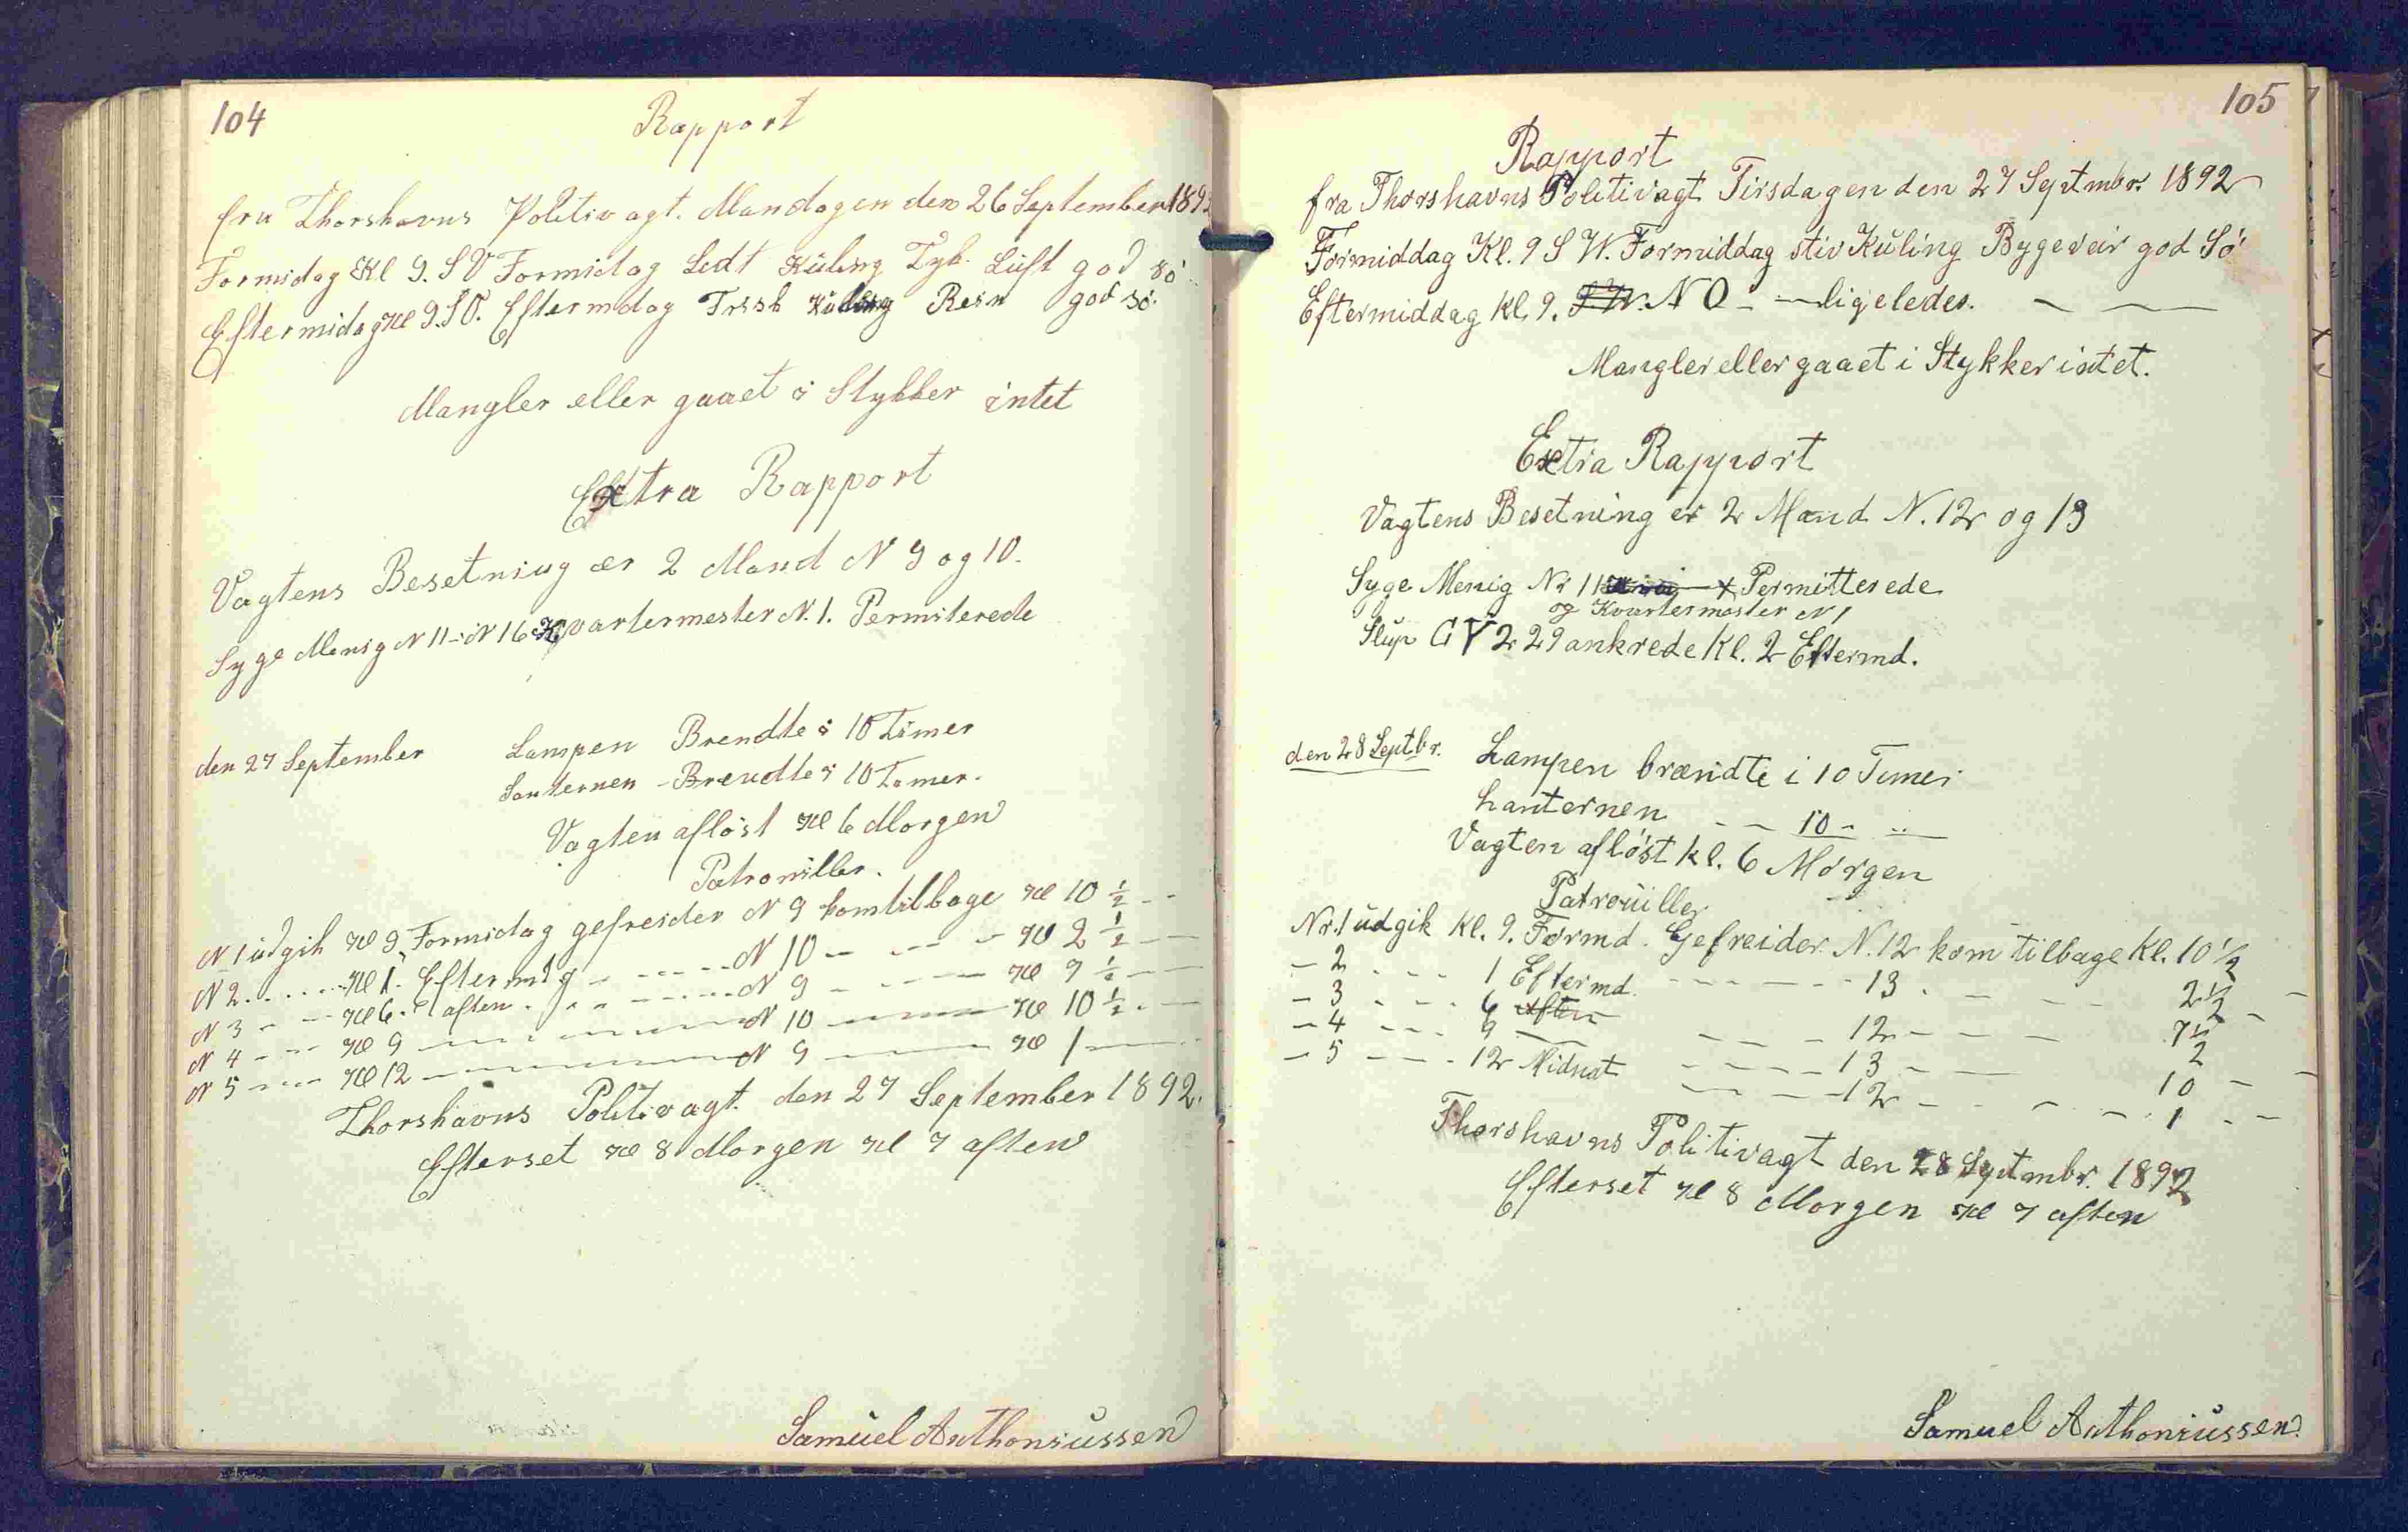 104
Rapport
fra Thorshavns Politivagt. Mandagen den 26 September 189
Formidag Kl 9. S V Formidag Ledt Kúling Tyk. Lúft god Sö
Eftermidag Kl 9. S O. Eftermdag Frisk Kúling Rein god sö.
Mangler eller gaaet i Stykker intet
Extra Rapport
Vagtens Besetning er 2 Mand N 9 og 10.
Syge Menig N 11 - N 16 Kvartermester N. 1. Permiterede
den 27 September Lampen Brendte i 10 Timer
Lanternen - Brendte i 10 Timer.
Vagten aflöst Kl 6 Morgen
Patroniller.
N 1 údgik Kl 9 Formidag gefreider N 9 kom tilbage Kl 10 ½ - -
N 2 . . . . . Kl 1. Eftermdg - - - - - N 10 - - - - Kl 2 ½ - -
N 3 - - - Kl 6. aften - - - - - N 9 - - - - Kl 7 ½ - -
N 4 - - - Kl 9 - - - - - N 10 - - - - Kl 10 ½ - -
N 5 - - - Kl 12 - - - - - N 9 - - - - Kl 1 - -
Thorshavns Politivagt. den 27 September 1892.
Efterset Kl 8 Morgen Kl 7 aften
Samúel Anthoniússen
105
Rapport
fra Thorshavns Politivagt Tirsdagen den 27 Septmbr. 1892
Formiddag Kl. 9 S W. Formiddag stiv Kúling Bygeveir god Sö
Eftermiddag Kl. 9. S W. N O - - ligeledes. - -
Mangler eller gaaet i Stykker intet.
Extra Rapport
Vagtens Besetning er 2 Mand N. 12 og 13
Syge Menig Nr 11 x Permitterede
og Kvartermester N 1
Slup G Y 2 29 ankrede Kl. 2 Eftermd.
den 28 Septbr. Lampen brændte i 10 Timer
Lanternen - - 10 - " -
Vagten aflöst kl. 6 Morgen
Patrouiller
Nr. 1 údgik Kl. 9. Formd. Gefreider N. 12 kom tilbage Kl. 10 ½
- 2 - - - 1 Eftermd. - - - - 13 - - - 2 ½ -
- 3 - - - 6 Aften - - - - 12 - - - 7 ½ -
- 4 - - - 9 - - - - - 13 - - - 10 - -
- 5 - - - 12 Midnat - - - - 12 - - - 1 - -
Thorshavns Politivagt den 28 Septmbr. 1892
Efterset Kl 8 Morgen Kl 7 aften
Samuel Anthoniússen.